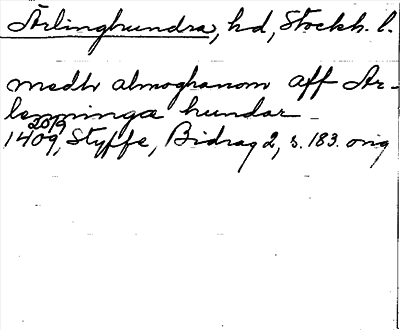 Ärlinghundra, hd, Stockh. l.
medh almoghanom aff Ar-
lenninga hundar
20/9
1409, Styffe, Bidrag 2, s. 183. orig